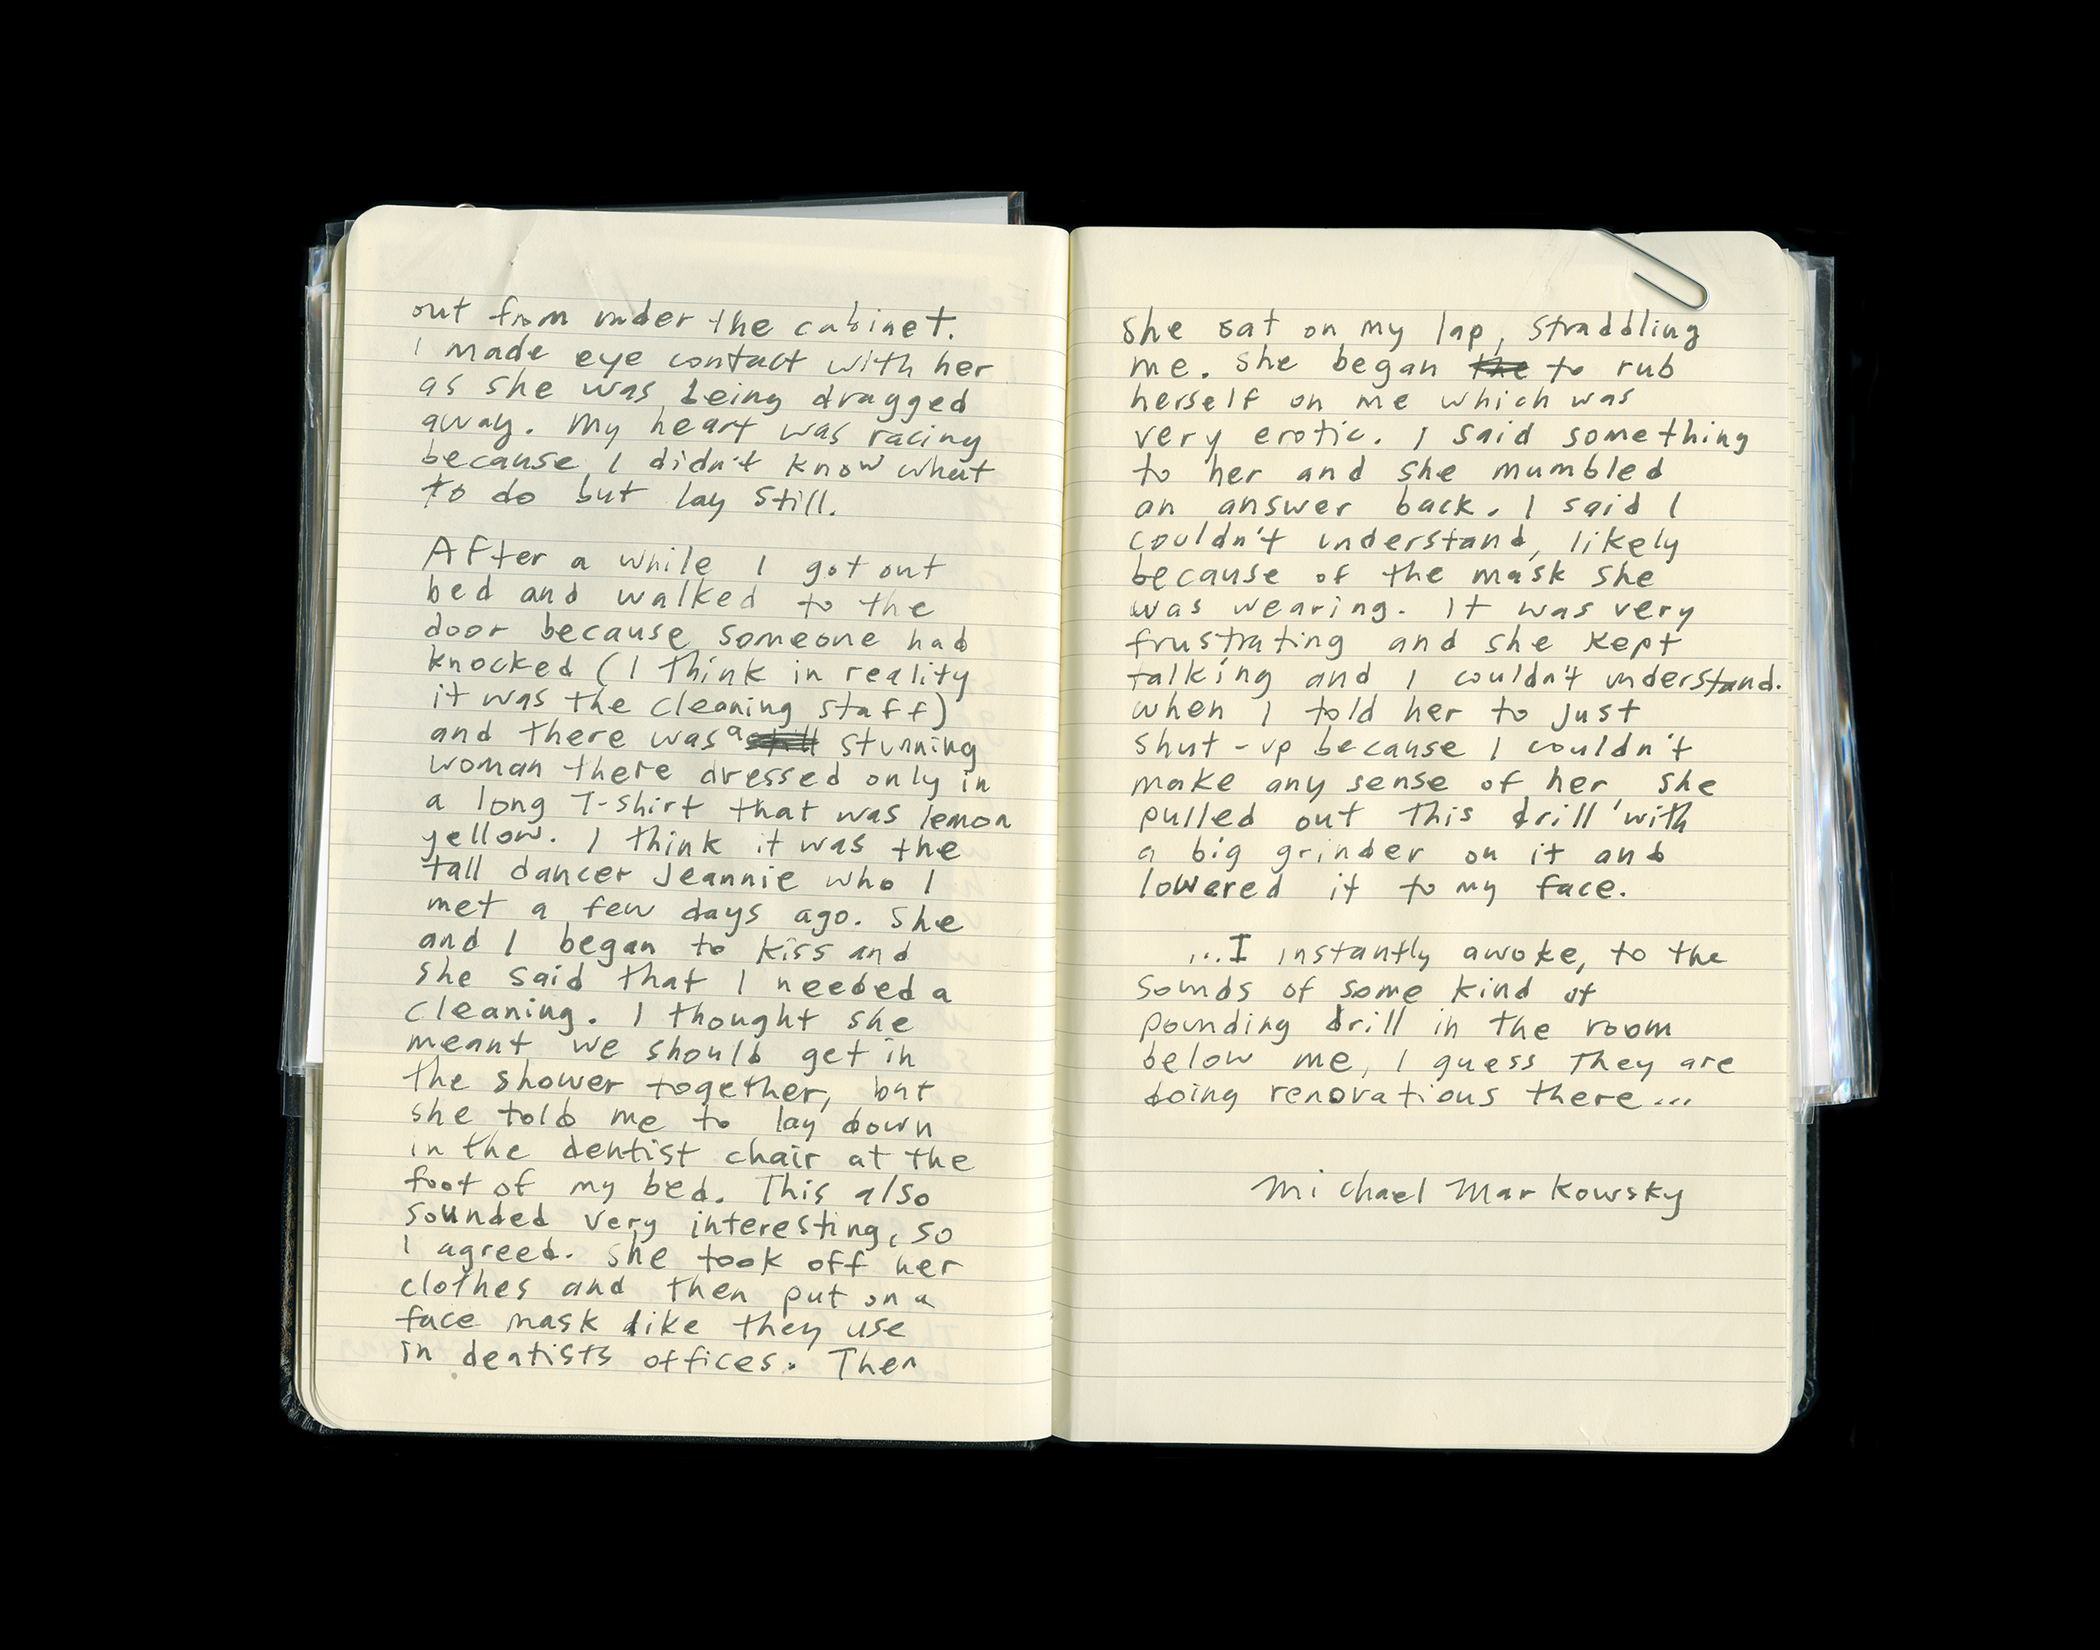 out from under the cabinet.
I made eye contact with her
as she was being dragged
away. My heart was racing
because I didn't know what
to do but lay still.
After a while I got out
bed and walked to the
door because someone had
knocked (I think in reality
it was the cleaning staff)
and there was a still stunning
woman there dressed only in
a long T-shirt that was lemon
yellow. I think it was the
tall dancer Jeannie who I
met a few days ago. She
and I began to kiss and
she said that I needed a
cleaning. I thought she
meant we should get in
the shower together, but
she told me to lay down
in the dentist chair at the
foot of my bed. This also
sounded very interesting, so
I agreed. She took off her
clothes and then put on a
face mask like they use
in dentists offices. Then
she sat on my lap, straddling
me. She began the to rub
herself on me which was
very erotic. I said something
to her and she mumbled
an answer back. I said I
couldn't understand, likely
because of the mask she
was wearing. It was very
frustrating and she kept
talking and I couldn't understand.
when I told her to just
shut-up because I couldn't
make any sense of her she
pulled out this drill with
a big grinder on it and
lowered it to my face.
...I instantly awoke, to the
sounds of some kind of
pounding drill in the room
below me, I guess they are
doing renovations there...
Michael Markowsky